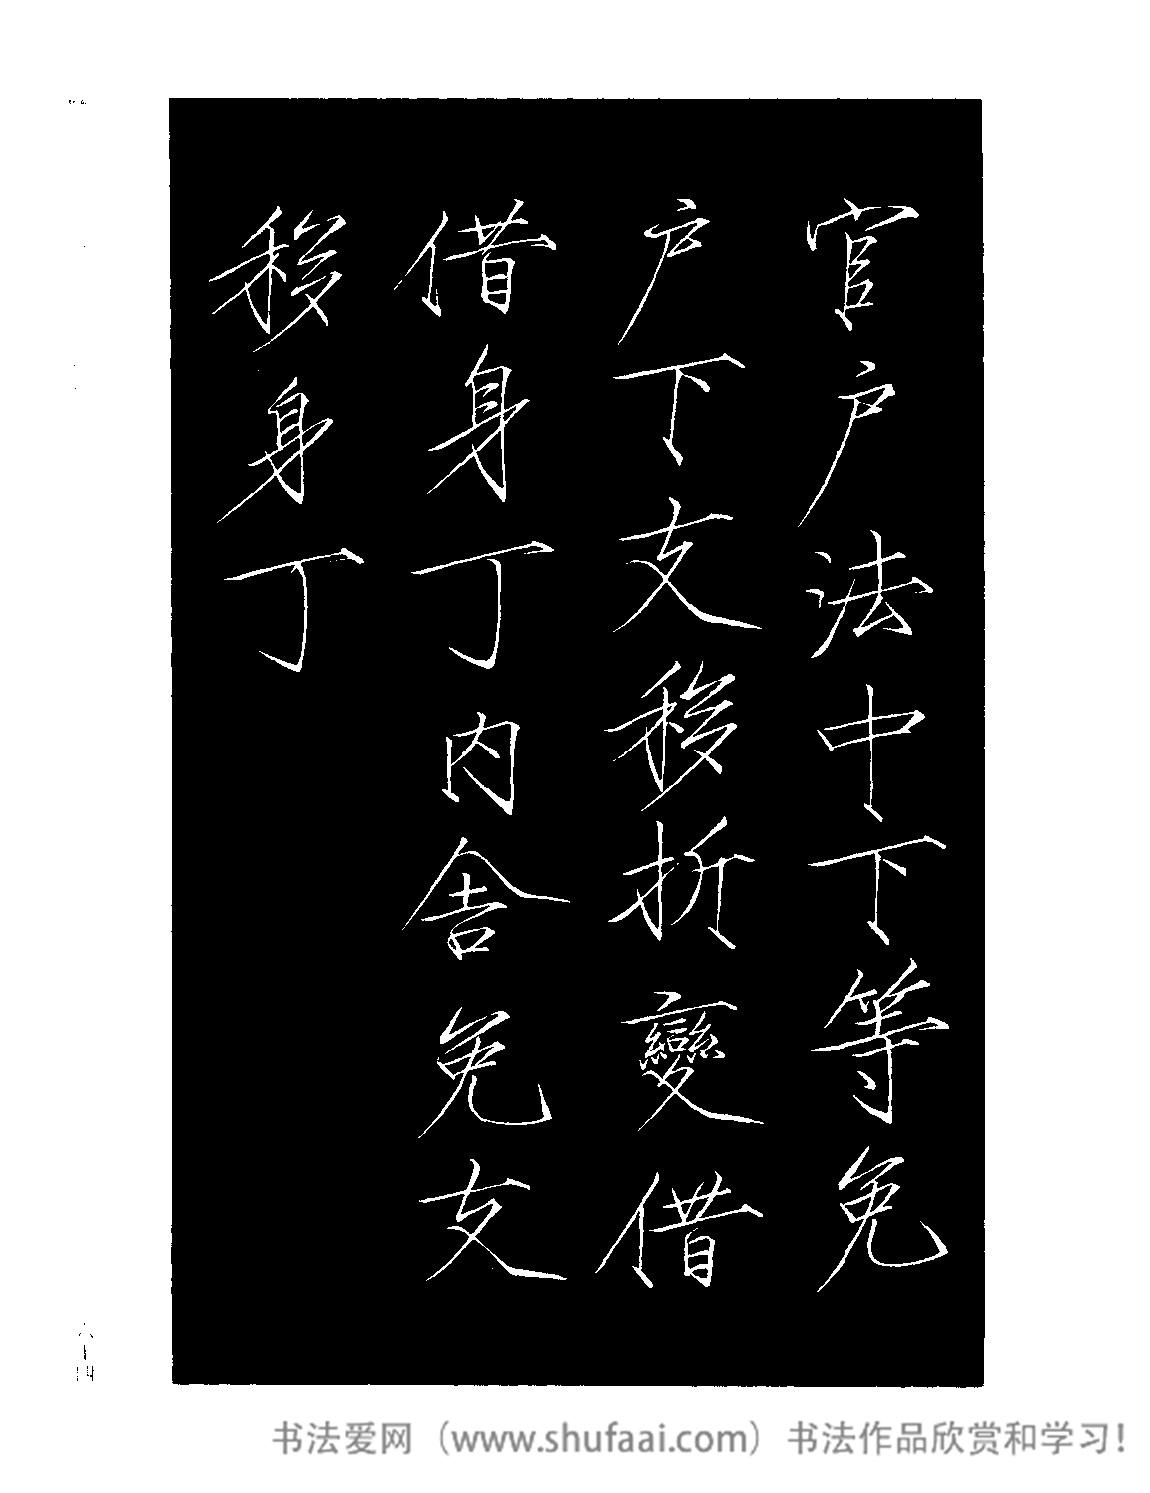 官户法中下等免
户下支移折變借
借身丁内舍免支
移身丁
六十四
书法爱网（www.shufaai.com）书法作品欣赏和学习！